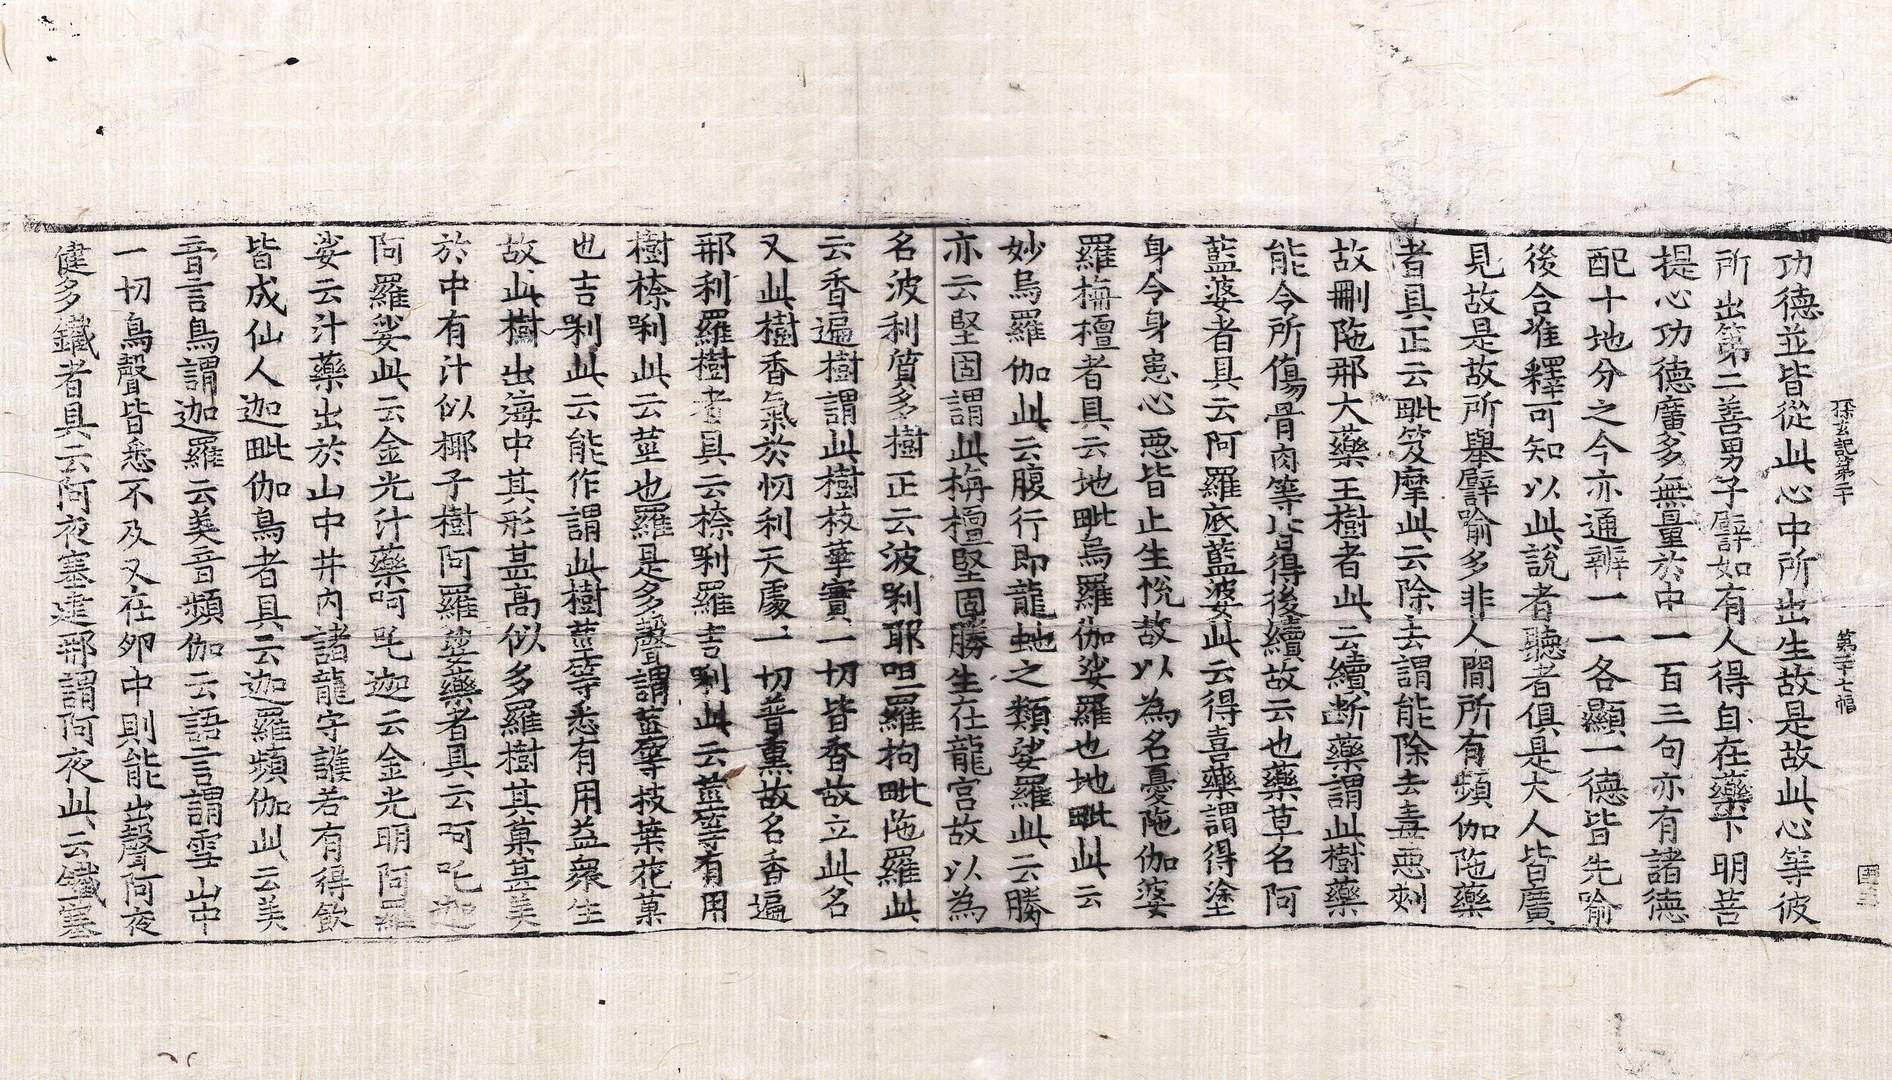 探玄記第二十　第二十七幅
功德並皆從此心中所出生故是故此心等彼
所出第二善男子譬如有人得自在藥下明菩
提心功德廣多無量於中一百三句亦有諸德
配十地分之今亦通辨一一各顯一德皆先喻
後合准釋可知以此說者聽者俱是大人皆廣
見故是故所舉譬喻多非人間所有頻伽陁藥
者具正云毗笈摩此云除去謂能除去毒惡刾
故刪陁那大藥王樹者此云續断藥謂此樹藥
能令所傷骨肉等皆得後續故云也藥草名阿
藍婆者具云阿羅底藍婆此云得喜藥謂得塗
身令身患心惡皆止生悅故以為名憂陁伽婆
羅栴檀者具云地毗烏羅伽娑羅也地毗此云
妙烏羅伽此云腹行即龍虵之類娑羅此云勝
亦云堅固謂此栴檀堅固勝生在龍宮故以為
名波利質多樹正云波刹耶呾羅拘毗陁羅此
云香遍樹謂此樹枝華實一切皆香故立此名
又此樹香氣於忉利天處一切普熏故名香遍
那利羅樹者具云㮈刹羅吉刹此云莖等有用
樹㮈刹此云莖也羅是多聲謂莖等枝葉花菓
也吉刹此云能作謂此樹莖等悉有用益衆生
故此樹出海中其形甚高似多羅樹其菓甚美
於中有汁似椰子樹阿羅娑藥者具云呵吒迦
阿羅娑此云金光汁藥呵吒迦云金光明阿羅
娑云汁藥出於山中井內諸龍守護若有得飲
皆成仙人迦毗伽鳥者具云迦羅頻伽此云美
音言鳥謂迦羅云美音頻伽云語言謂雪山中
一切鳥聲皆悉不及又在卵中則能出聲阿夜
健多鐵者具云阿夜塞建那謂阿夜此云鐵塞